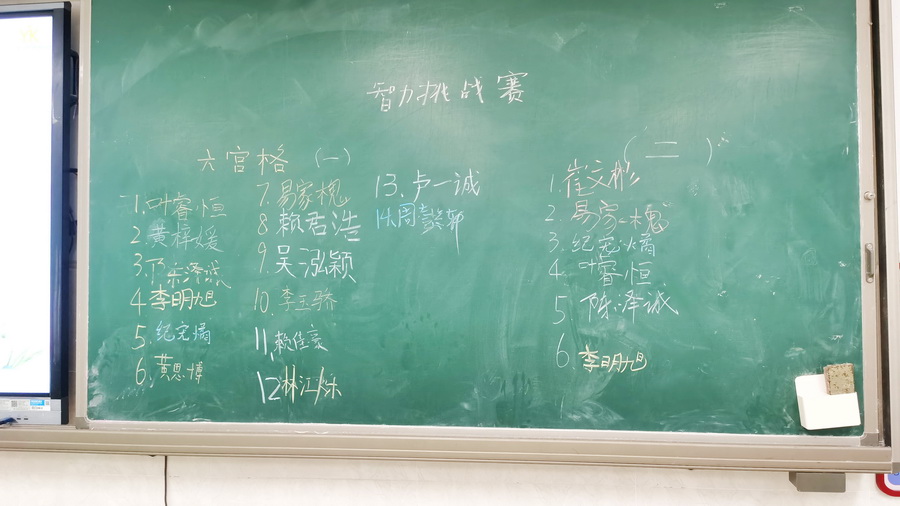 智力挑战赛
六宫格（一）
1.叶睿恒
2.黄梓媛
3.陈泽诚
4.李明旭
5.纪宪燏
6.黄思博
7.易家槐
8.赖君浩
9.吴泓颖
10.李玉骄
11.赖佳豪
12.林江烁
13.卢一诚
14.周
（二）
1.崔文彬
2.易家槐
3.纪宪燏
4.叶睿恒
5.陈泽诚
6.李明旭